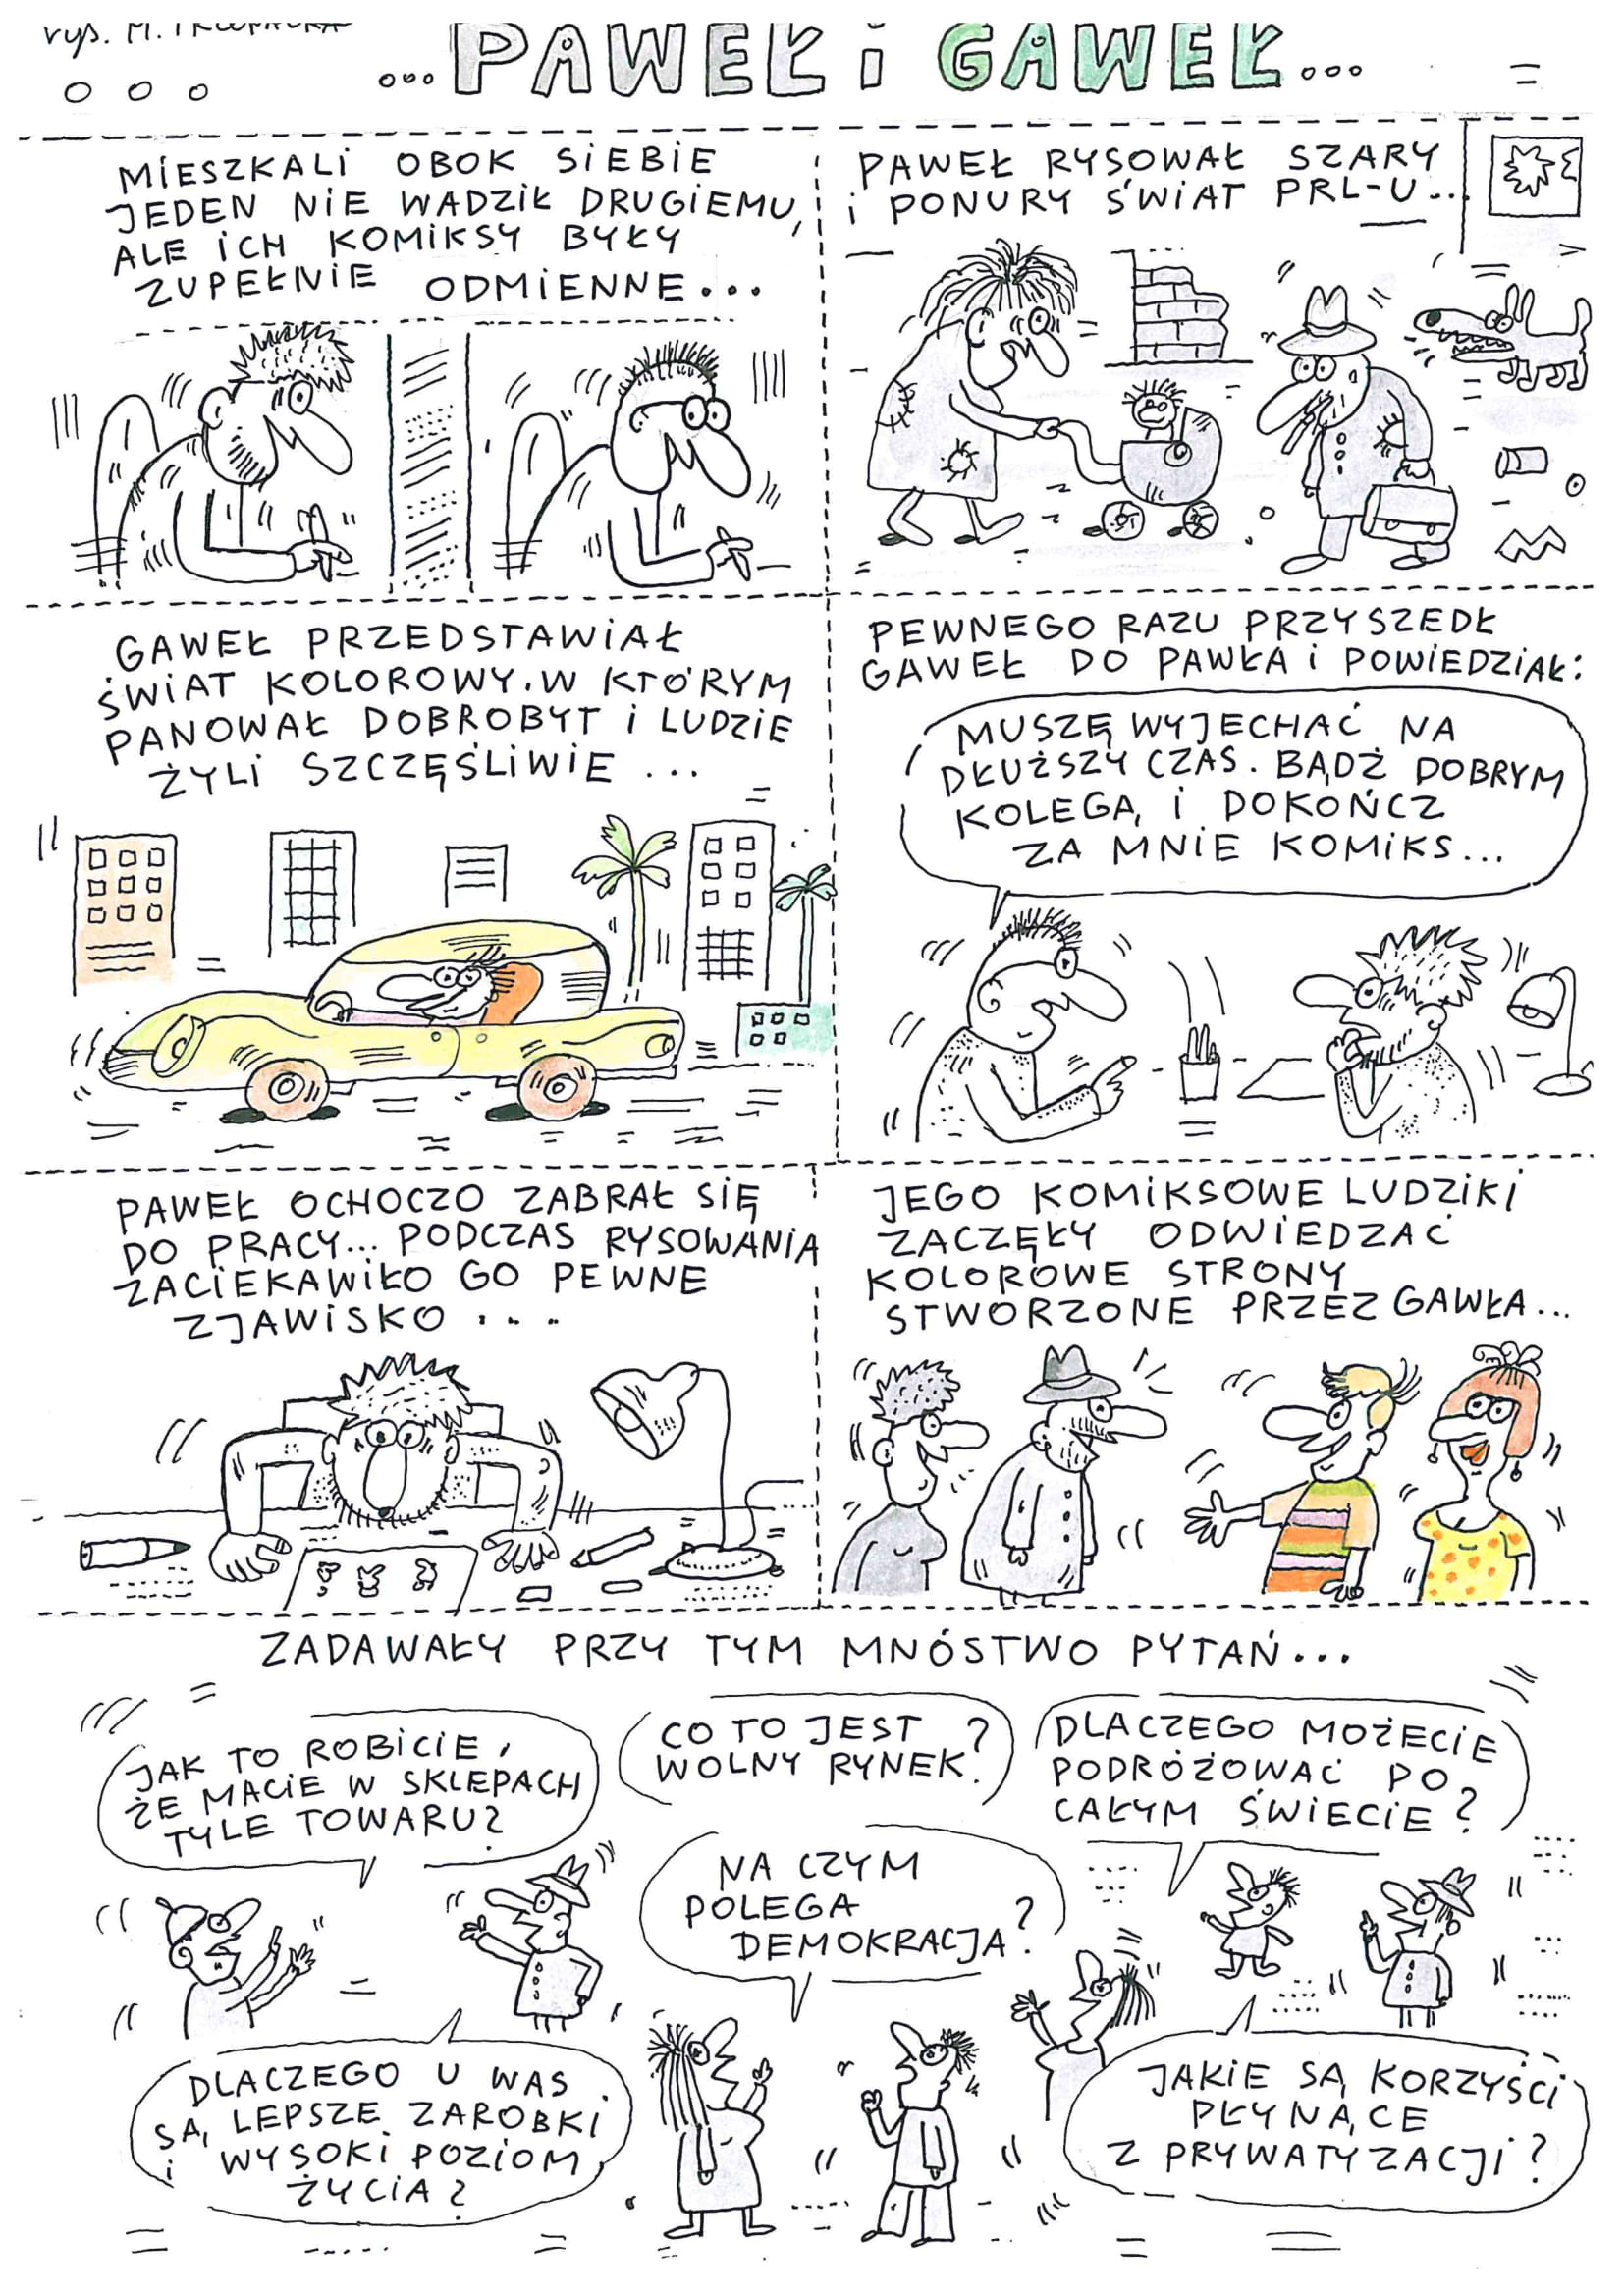 rys. M.
...PAWEŁ i GAWEŁ...
MIESZKALI OBOK SIEBIE
JEDEN NIE WADZIŁ DRUGIEMU,
ALE ICH KOMIKSY BYŁY
ZUPEŁNIE ODMIENNE...
PAWEŁ RYSOWAŁ SZARY
i PONURY ŚWIAT PRL-U...
GAWEŁ PRZEDSTAWIAŁ
ŚWIAT KOLOROWY, W KTÓRYM
PANOWAŁ DOBROBYT I LUDZIE
ŻYLI SZCZĘŚLIWIE...
PEWNEGO RAZU PRZYSZEDŁ
GAWEŁ DO PAWŁA i POWIEDZIAŁ:
MUSZĘ WYJECHAĆ NA
DŁUŻSZY CZAS. BĄDŹ DOBRYM
KOLEGĄ I DOKOŃCZ
ZA MNIE KOMIKS...
PAWEŁ OCHOCZO ZABRAŁ SIĘ
DO PRACY... PODCZAS RYSOWANIA
ZACIEKAWIŁO GO PEWNE
ZJAWISKO...
JEGO KOMIKSOWE LUDZIKI
ZACZĘŁY ODWIEDZAĆ
KOLOROWE STRONY
STWORZONE PRZEZ GAWŁA...
ZADAWAŁY PRZY TYM MNÓSTWO PYTAŃ...
JAK TO ROBICIE,
ŻE MACIE W SKLEPACH
TYLE TOWARU?
CO TO JEST
WOLNY RYNEK?
DLACZEGO MOŻECIE
PODRÓŻOWAĆ PO
CAŁYM ŚWIECIE?
NA CZYM
POLEGA
DEMOKRACJA?
DLACZEGO U WAS
SĄ LEPSZE ZAROBKI
i WYSOKI POZIOM
ŻYCIA?
JAKIE SĄ KORZYŚCI
PŁYNĄCE
Z PRYWATYZACJI?